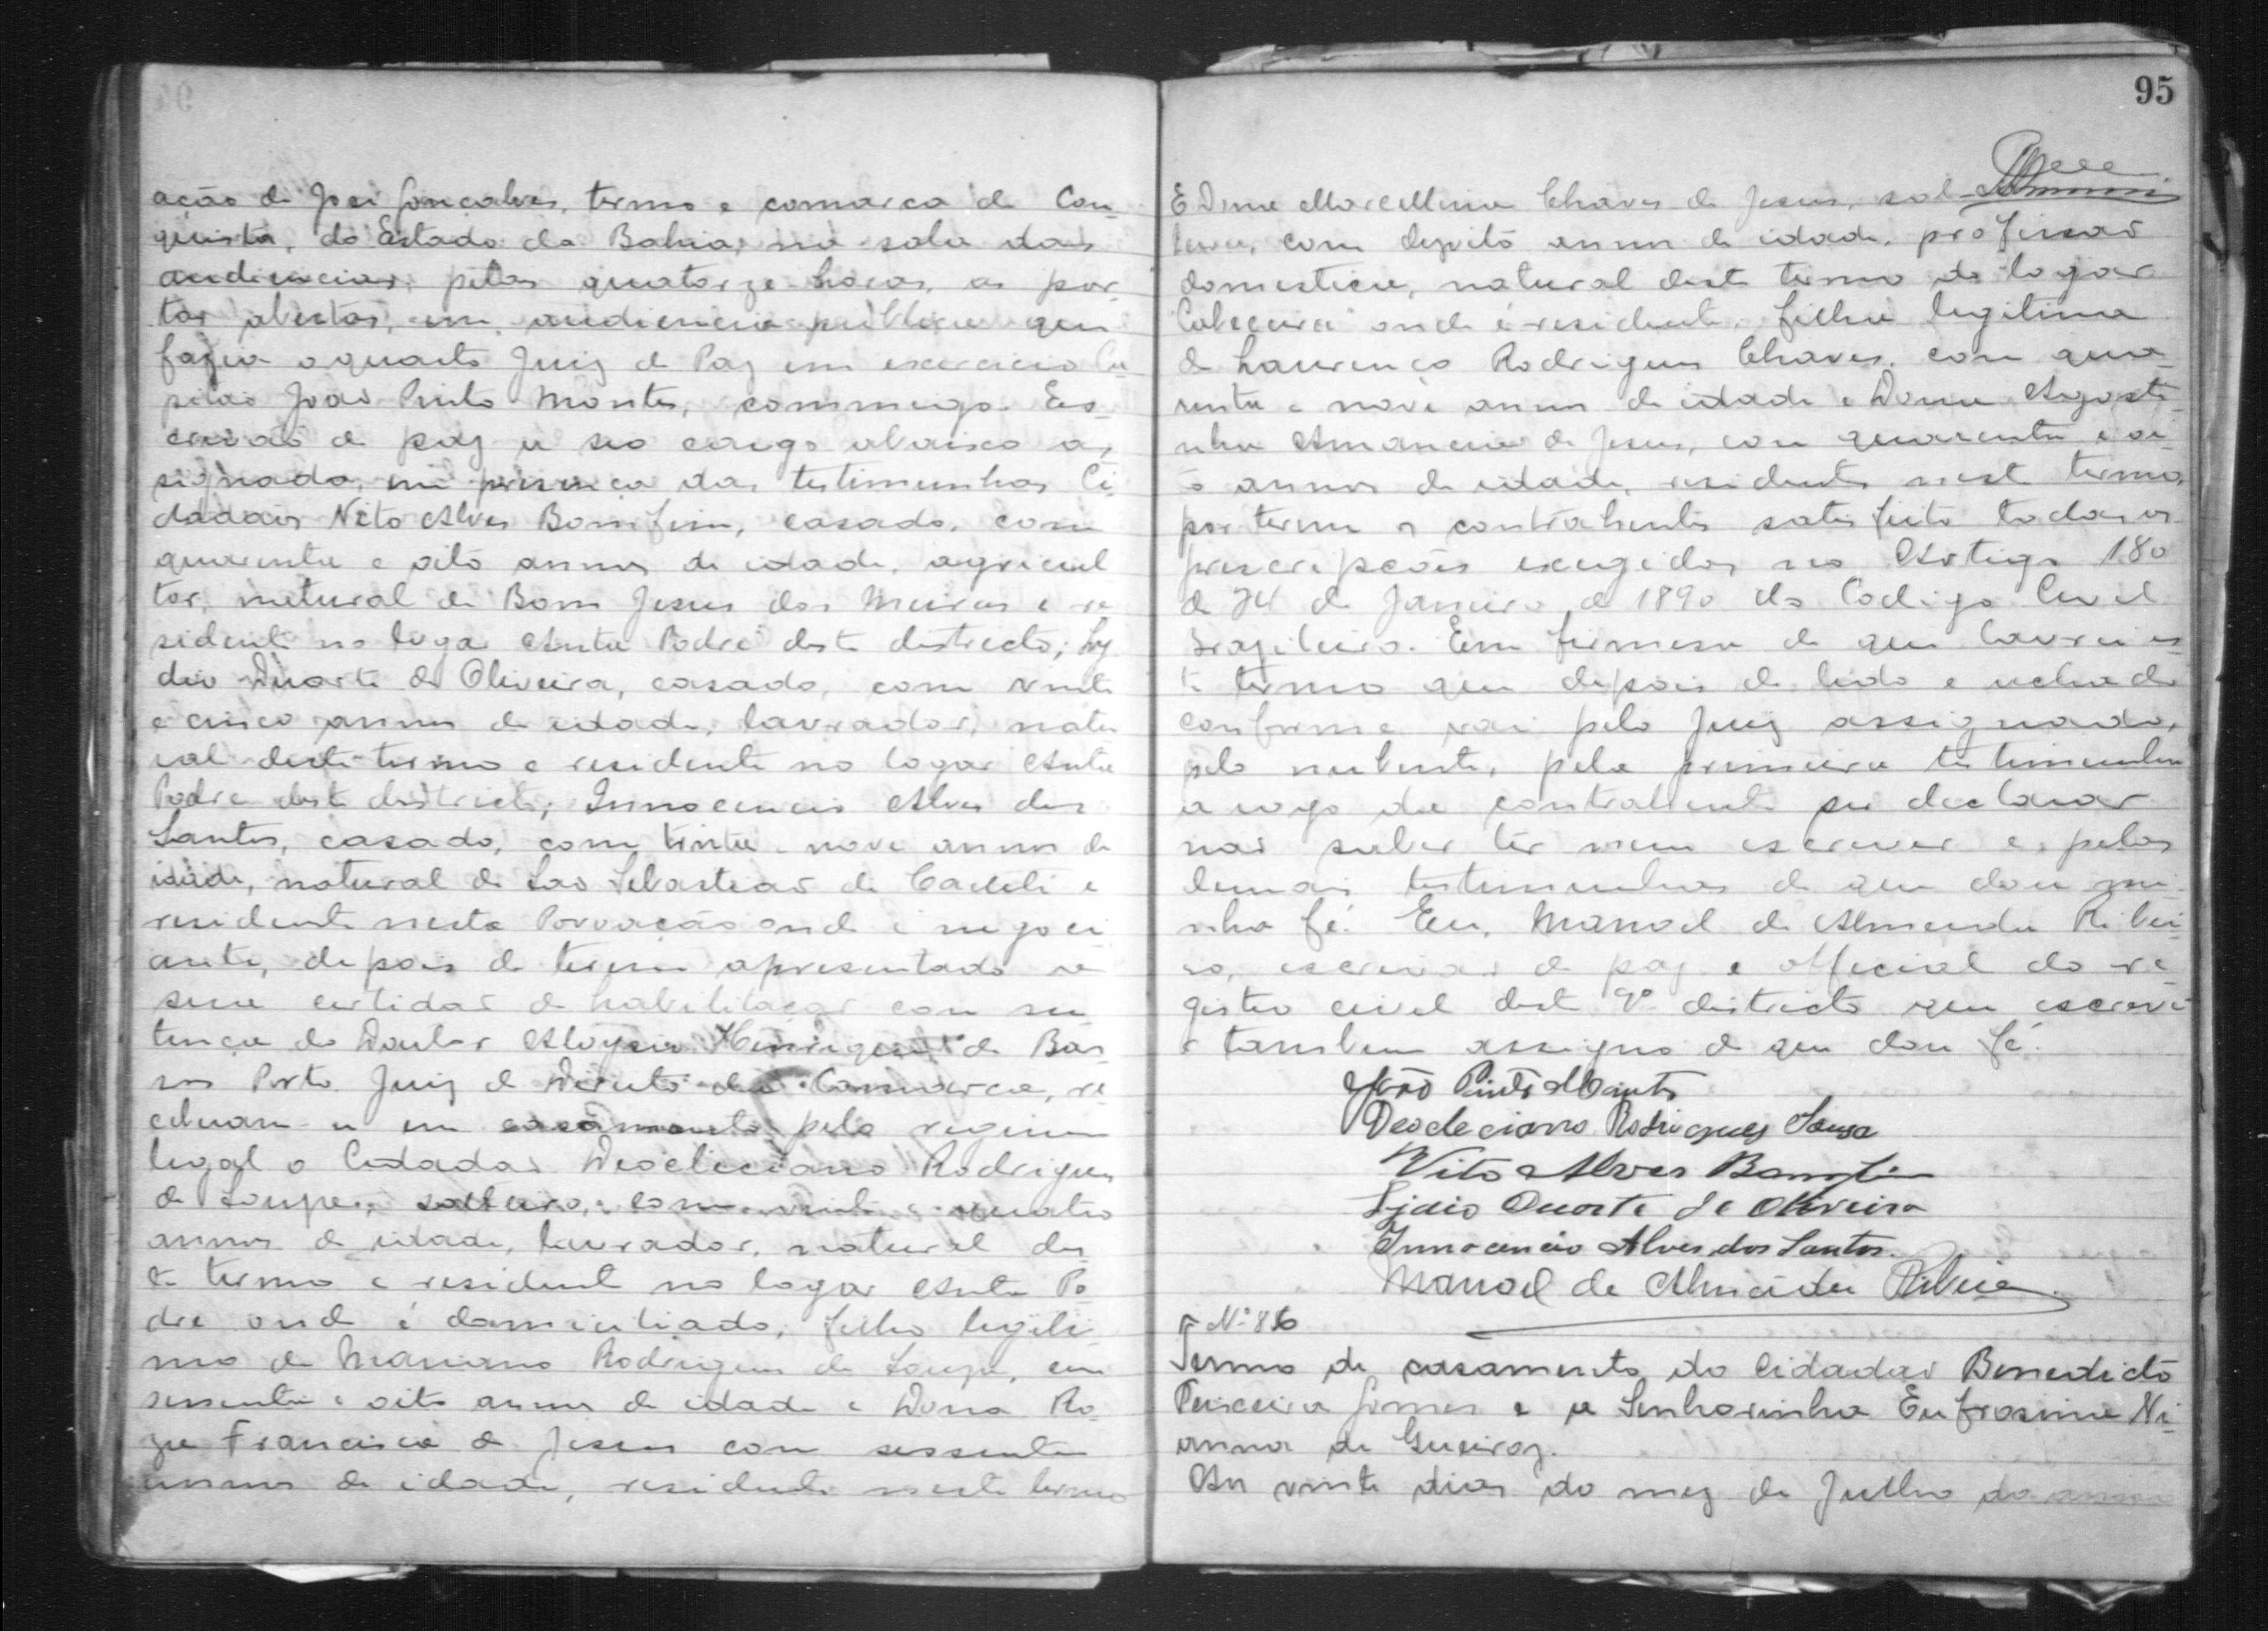 ação de José Gonçalves, termo e comarca de Con-
quista, do Estado da Bahia, na sala das
audiencias, pelas quatorze horas, as por-
tas abertas, em audiencia publica que
fazia o quarto Juiz de Paz em exercicio Ca-
pitão João Pinto Montes, commigo Es-
crivão de paz a seo cargo abaixo a,
signado, em presença das testimunhas Ci-
dadãos Vito Alves Bomfim, casado, com
quarenta e oito annos de idade, agricul-
tor, natural de Bom Jesus dos Meiras e re
sidente no logar Anta Podre deste districto; Ly
dio Duarte de Oliveira, casado, com vinte
e cinco annos de idade, lavrador, natu
ral deste termo e residente no logar Anta
Podre deste districto; Innocencio Alves dos
Santos, casado, com trinta e nove annos de
idade, natural de Sao Sebastião de Caeteté e
residente nesta Povoação onde é negoci
ante, depois de terem apresentado a
sua certidão de habilitação com sen
tença do Doutor Aloysio Henrique de Bar
ros Porto Juiz de Direito da Comarca, re
ceberam-se em casamento pelo regimen
legal o Cidadão Deocleciano Rodrigues
de Souza, solteiro, com vinte e quatro
annos de idade, lavrador, natural des
te termo e residente no logar Anta Po
dre onde é domiciliado, filho legiti
mo de Mariano Rodrigues de Souza, com
sessenta e oito annos de idade e Dona Ro
za Francisca de Jesus com sessenta
annos de idade, residente neste termo
95
E Dona Marcellina Chaves de Jesus, sol-
teira, com dezoito annos de idade, profissão
domestica, natural deste termo do logar
Cabeceira onde é residente, filha legitima
de Laurenço Rodrigues Chaves, com qua-
renta e nove annos de idade e Dona Agosti-
nha Amancia de Jesus, com quarenta e oi-
to annos de idade, residentes neste termo,
por terem os contrahentes satisfeito todas as
prescripções exegidas no Artigo 180
de 24 de Janeiro de 1890 do Codigo Civil
Brazileiro. Em firmesa de que lavrei es
te termo que depois de lido e achado
conforme vai pelo Juiz assignado,
pelo nubente, pela primeira testimunha
a rogo da contrahente por declarar
não saber ler nem escrever e pelas
demais testimunhas de que dou mi-
nha fé. Eu, Manoel de Almeida Ribei-
ro, escrivão de paz e official do re
gistro civil deste 9º districto que escrevi
e tambem assigno de que dou fé.
João Pinto Montes
Deocleciano Rodrigues Souza
Vito Alves Bomfim
Lidio Duarte de Oliveira
Innocencio Alves dos Santos
Manoel de Almeida Ribeiro
Nº 86
Termo de casamento do Cidadão Benedicto
Teixeira Gomes e a Senhorinha Eufrosina Vi-
anna de Queiroz.
Aos vinte dias do mez de Julho do anno